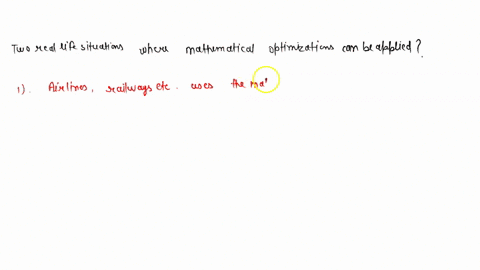 Two real life situations where mathematical optimizations can be applied?
1). Airlines, railways etc. uses the mat